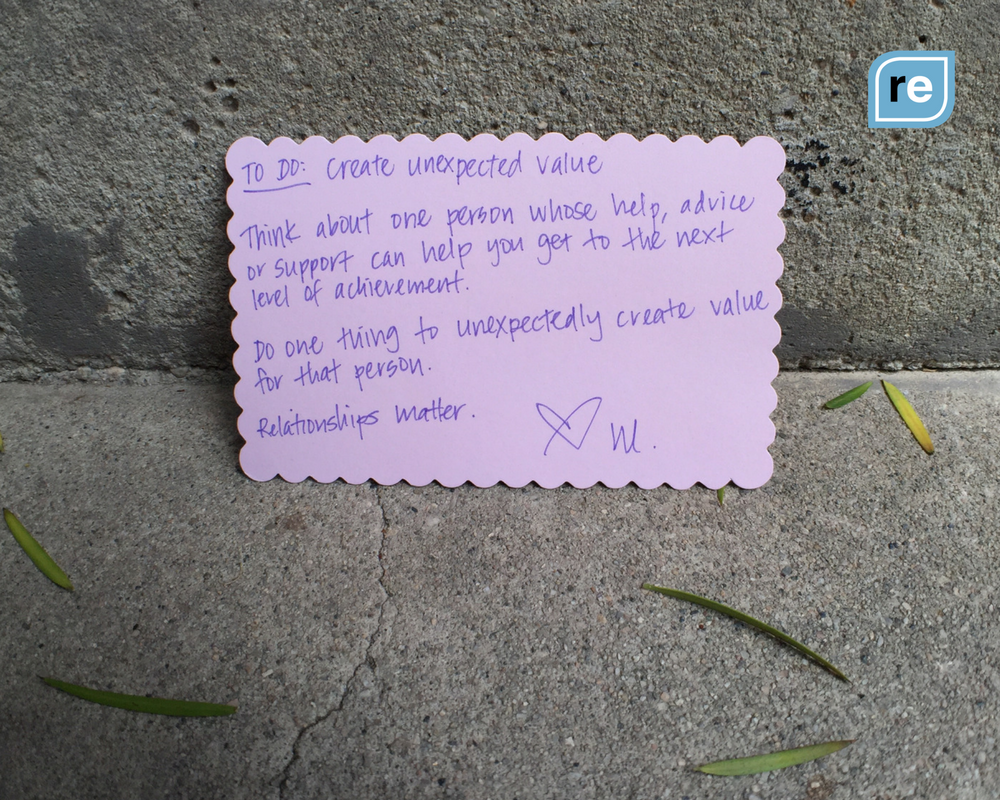 re
TO DO: Create unexpected value
Think about one person whose help, advice
or support can help you get to the next
level of achievement.
Do one thing to unexpectedly create value
for that person.
Relationships matter.
M.